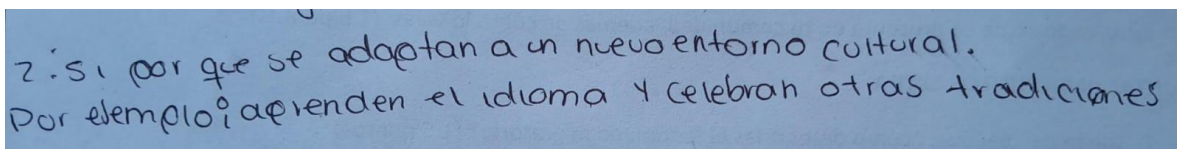 2. Si por que se adaptan a un nuevo entorno cultural.
Por ejemplo; aprenden el idioma y celebran otras tradiciones